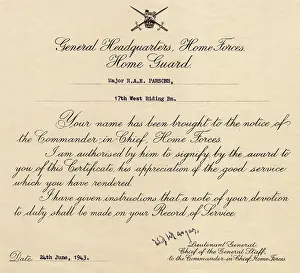 General Headquarters, Home Forces.
Home Guard.
Major R.A.H. PARSONS,
17th West Riding Bn.
Your name has been brought to the notice of
the Commander-in-Chief, Home Forces.
I am authorised by him to signify by the award to
you of this Certificate, his appreciation of the good service
which you have rendered.
I have given instructions that a note of your devotion
to duty shall be made on your Record of Service.
Lieutenant-General:
Chief of the General Staff,
to the Commander-in-Chief, Home Forces.
Date 24th June, 1943.